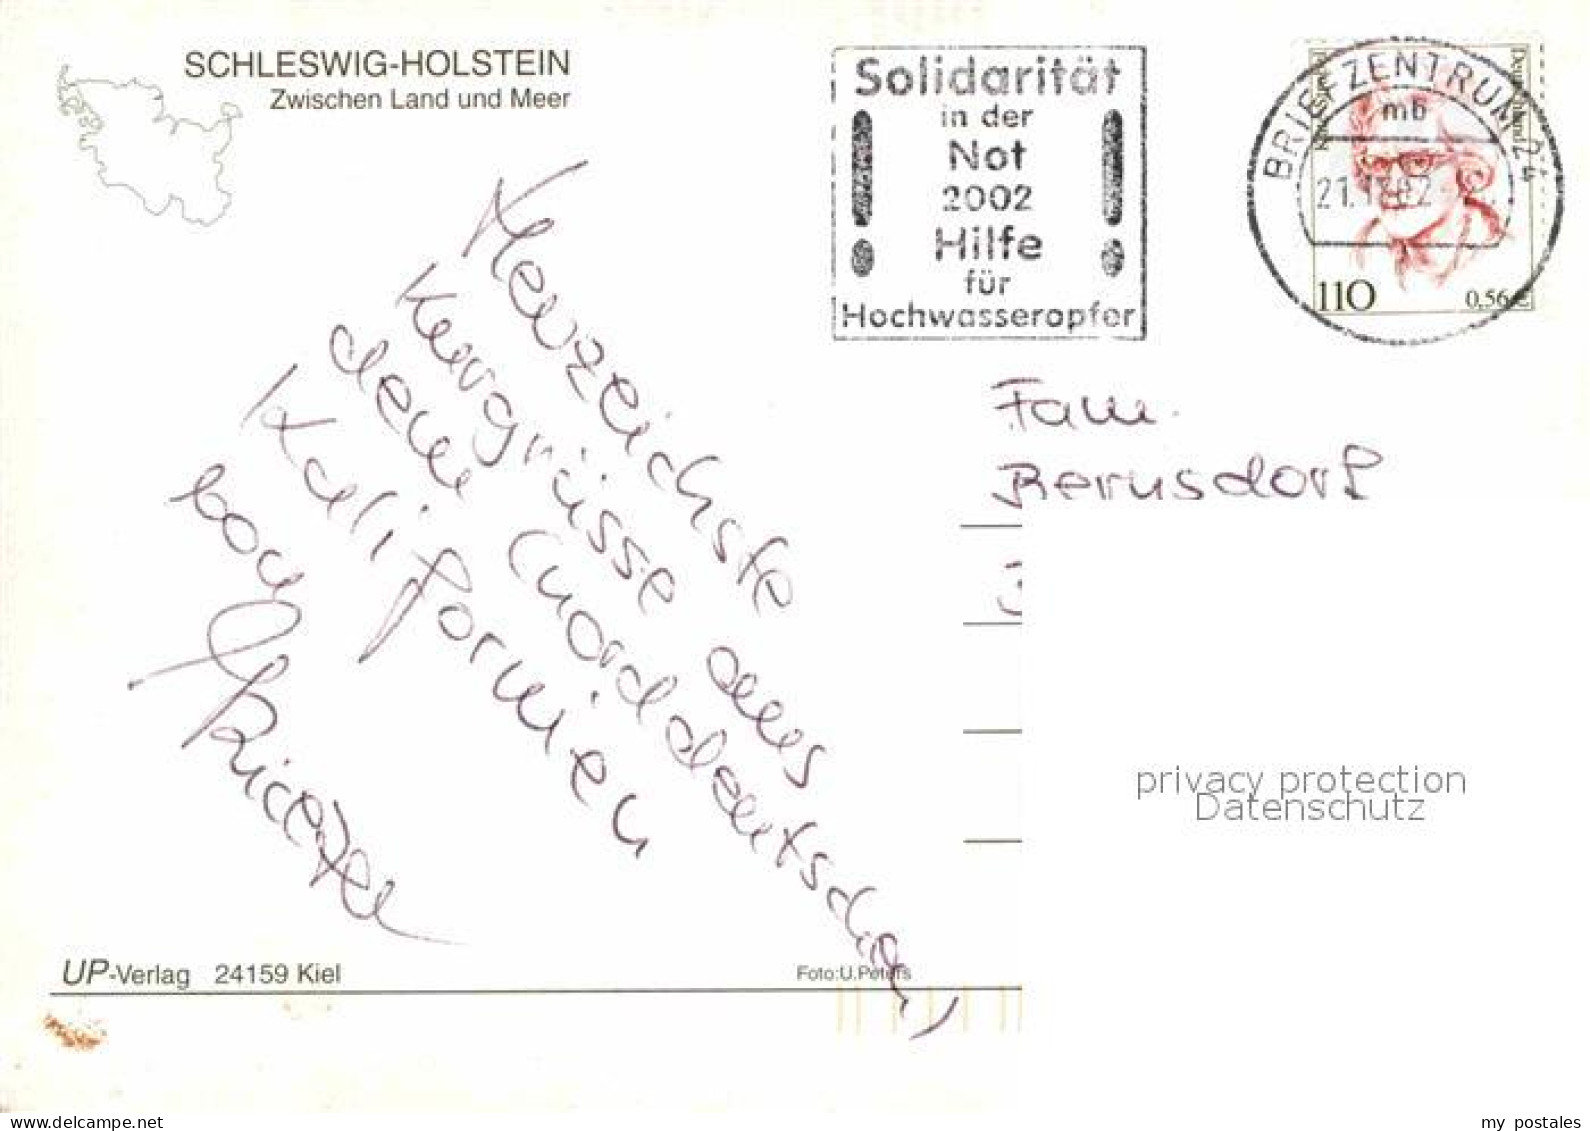 SCHLESWIG-HOLSTEIN
Zwischen Land und Meer
Solidarität
in der
Not
2002
Hilfe
für
Hochwasseropfer
BRIEFZENTRUM 24
mb
Deutschland
110
0,56 €
Herzlichste
Kurgrüsse aus
dem (norddeutschen)
Kalifornien
von
Fam.
Bernsdorf
privacy protection
Datenschutz
UP-Verlag 24159 Kiel
Foto:U.Peters
www.delcampe.net
my_postales